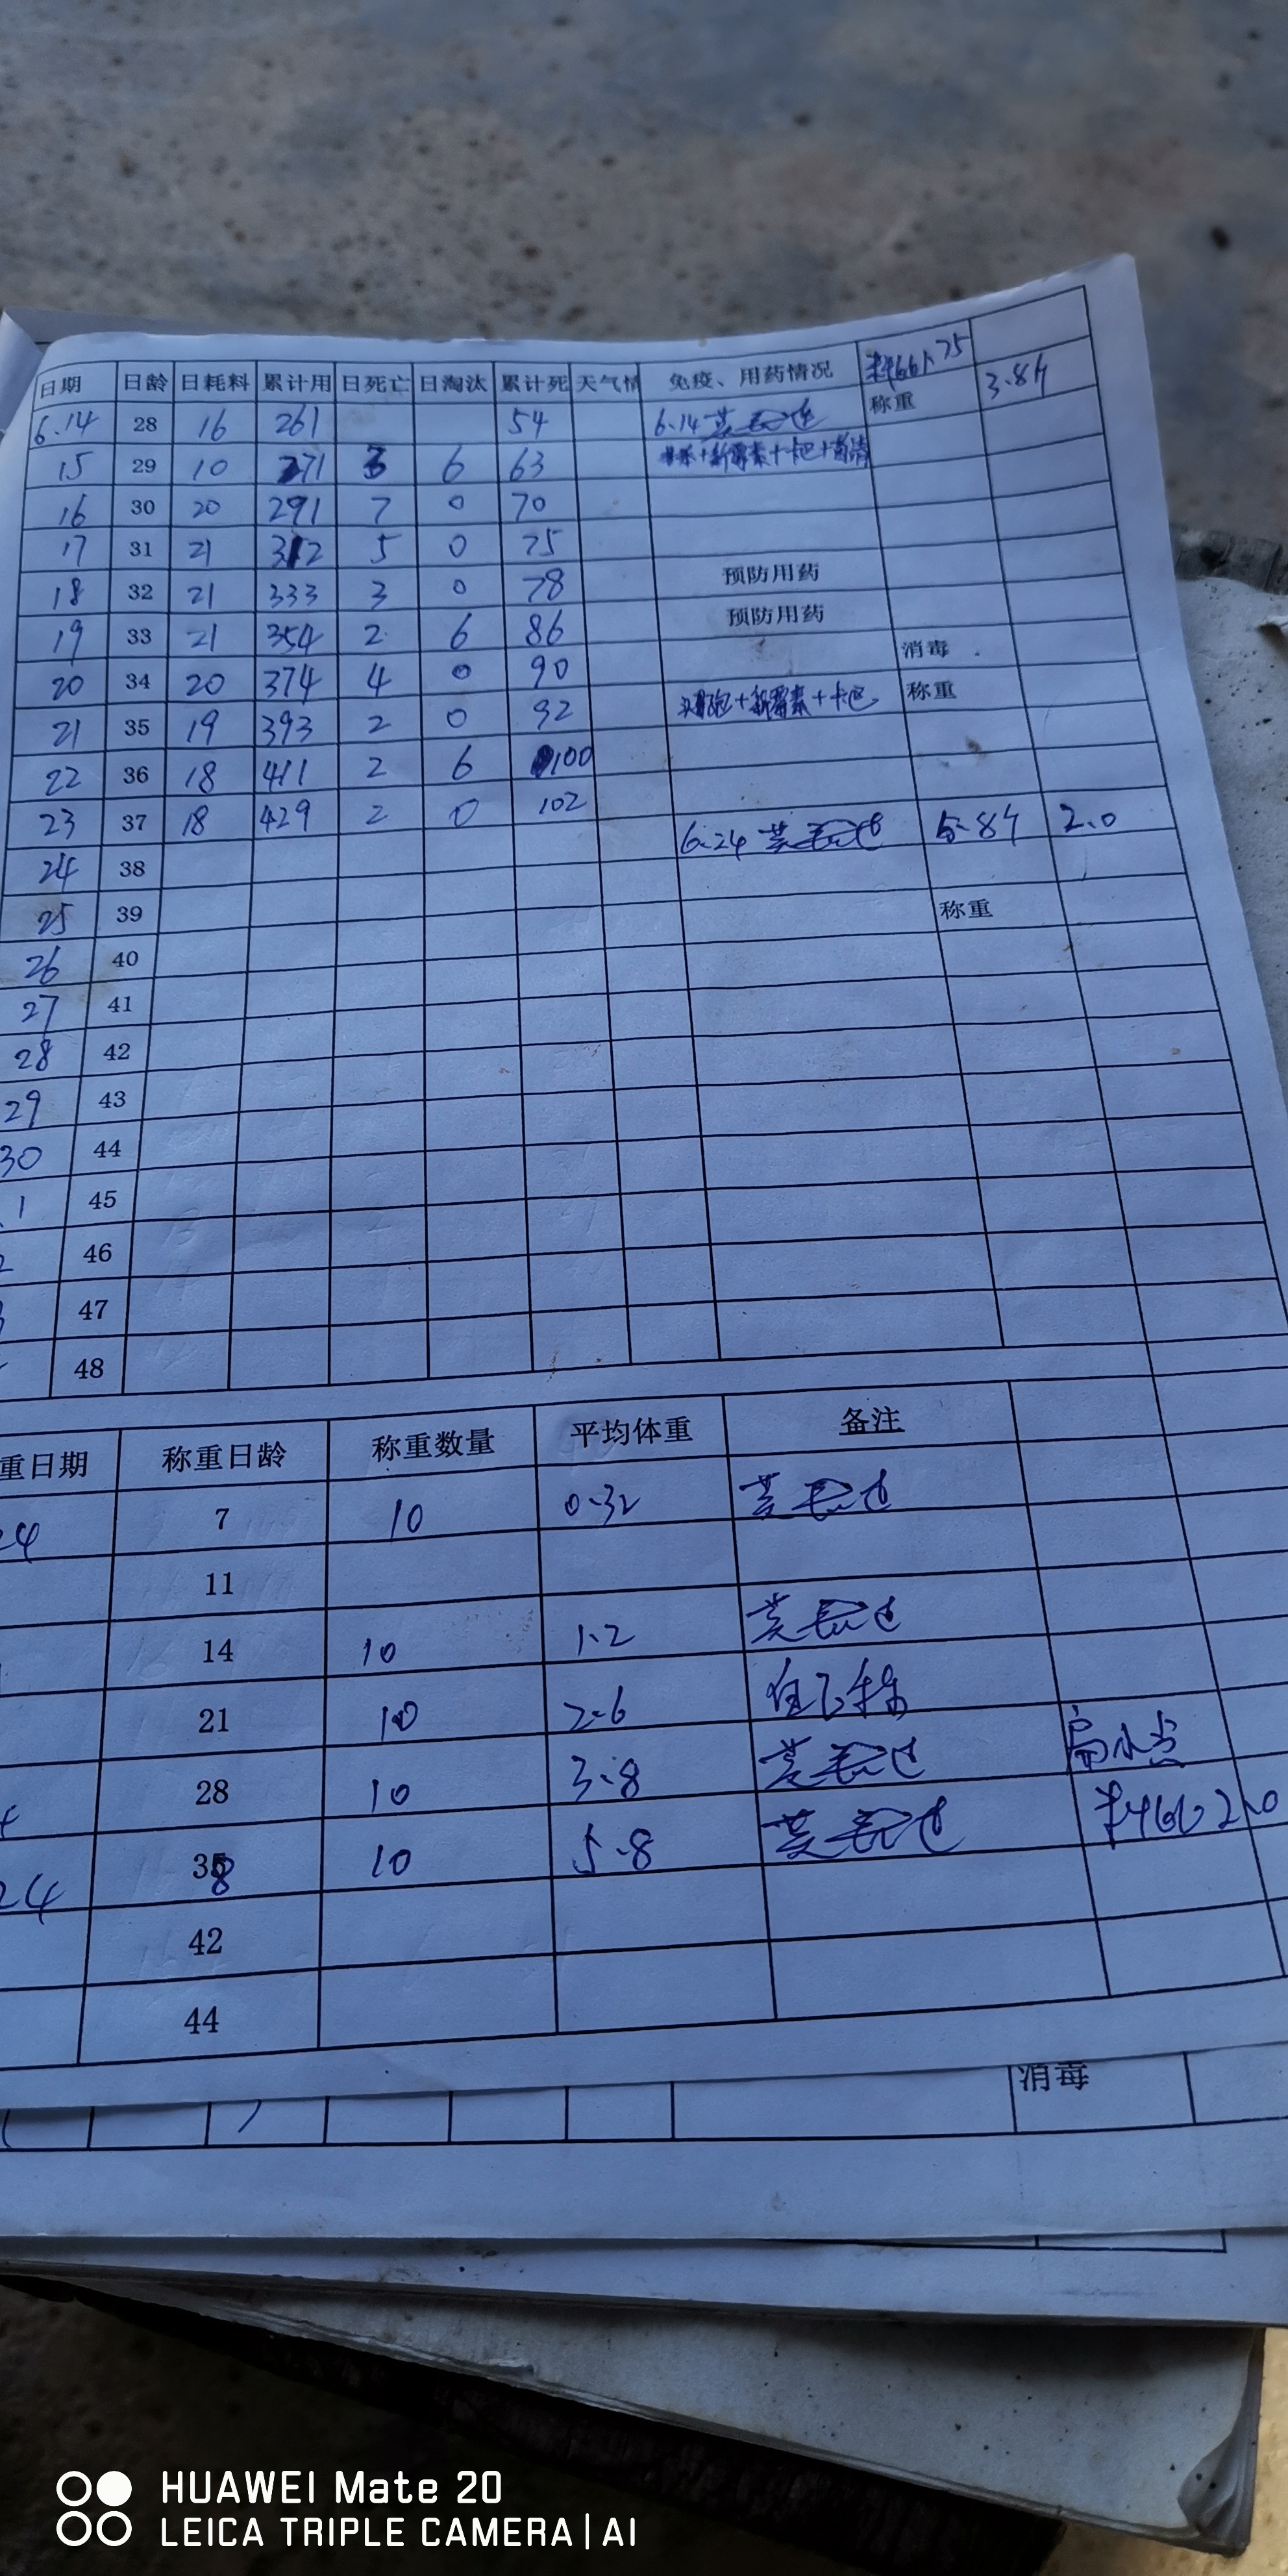 日期 日龄 日耗料 累计用 日死亡 日淘汰 累计死 天气情 免疫、用药情况 料肉比1.75
6.14 28 16 261 54 6.14 称重 3.8斤
15 29 10 271 3 6 63 +新霉素+卡巴+
16 30 20 291 7 0 70
17 31 21 312 5 0 75
18 32 21 333 3 0 78 预防用药
19 33 21 354 2 6 86 预防用药
20 34 20 374 4 0 90 消毒
21 35 19 393 2 0 92 头孢+新霉素+卡巴 称重
22 36 18 411 2 6 100
23 37 18 429 2 0 102
24 38 6.24 5.8斤 2.0
25 39
26 40 称重
27 41
28 42
29 43
30 44
1 45
2 46
3 47
48
重日期 称重日龄 称重数量 平均体重 备注
24 7 10 0.32
11
14 10 1.2
21 10 2.6
28 10 3.8
24 38 10 5.8 料肉比2.0
42
44
消毒
HUAWEI Mate 20
LEICA TRIPLE CAMERA | AI